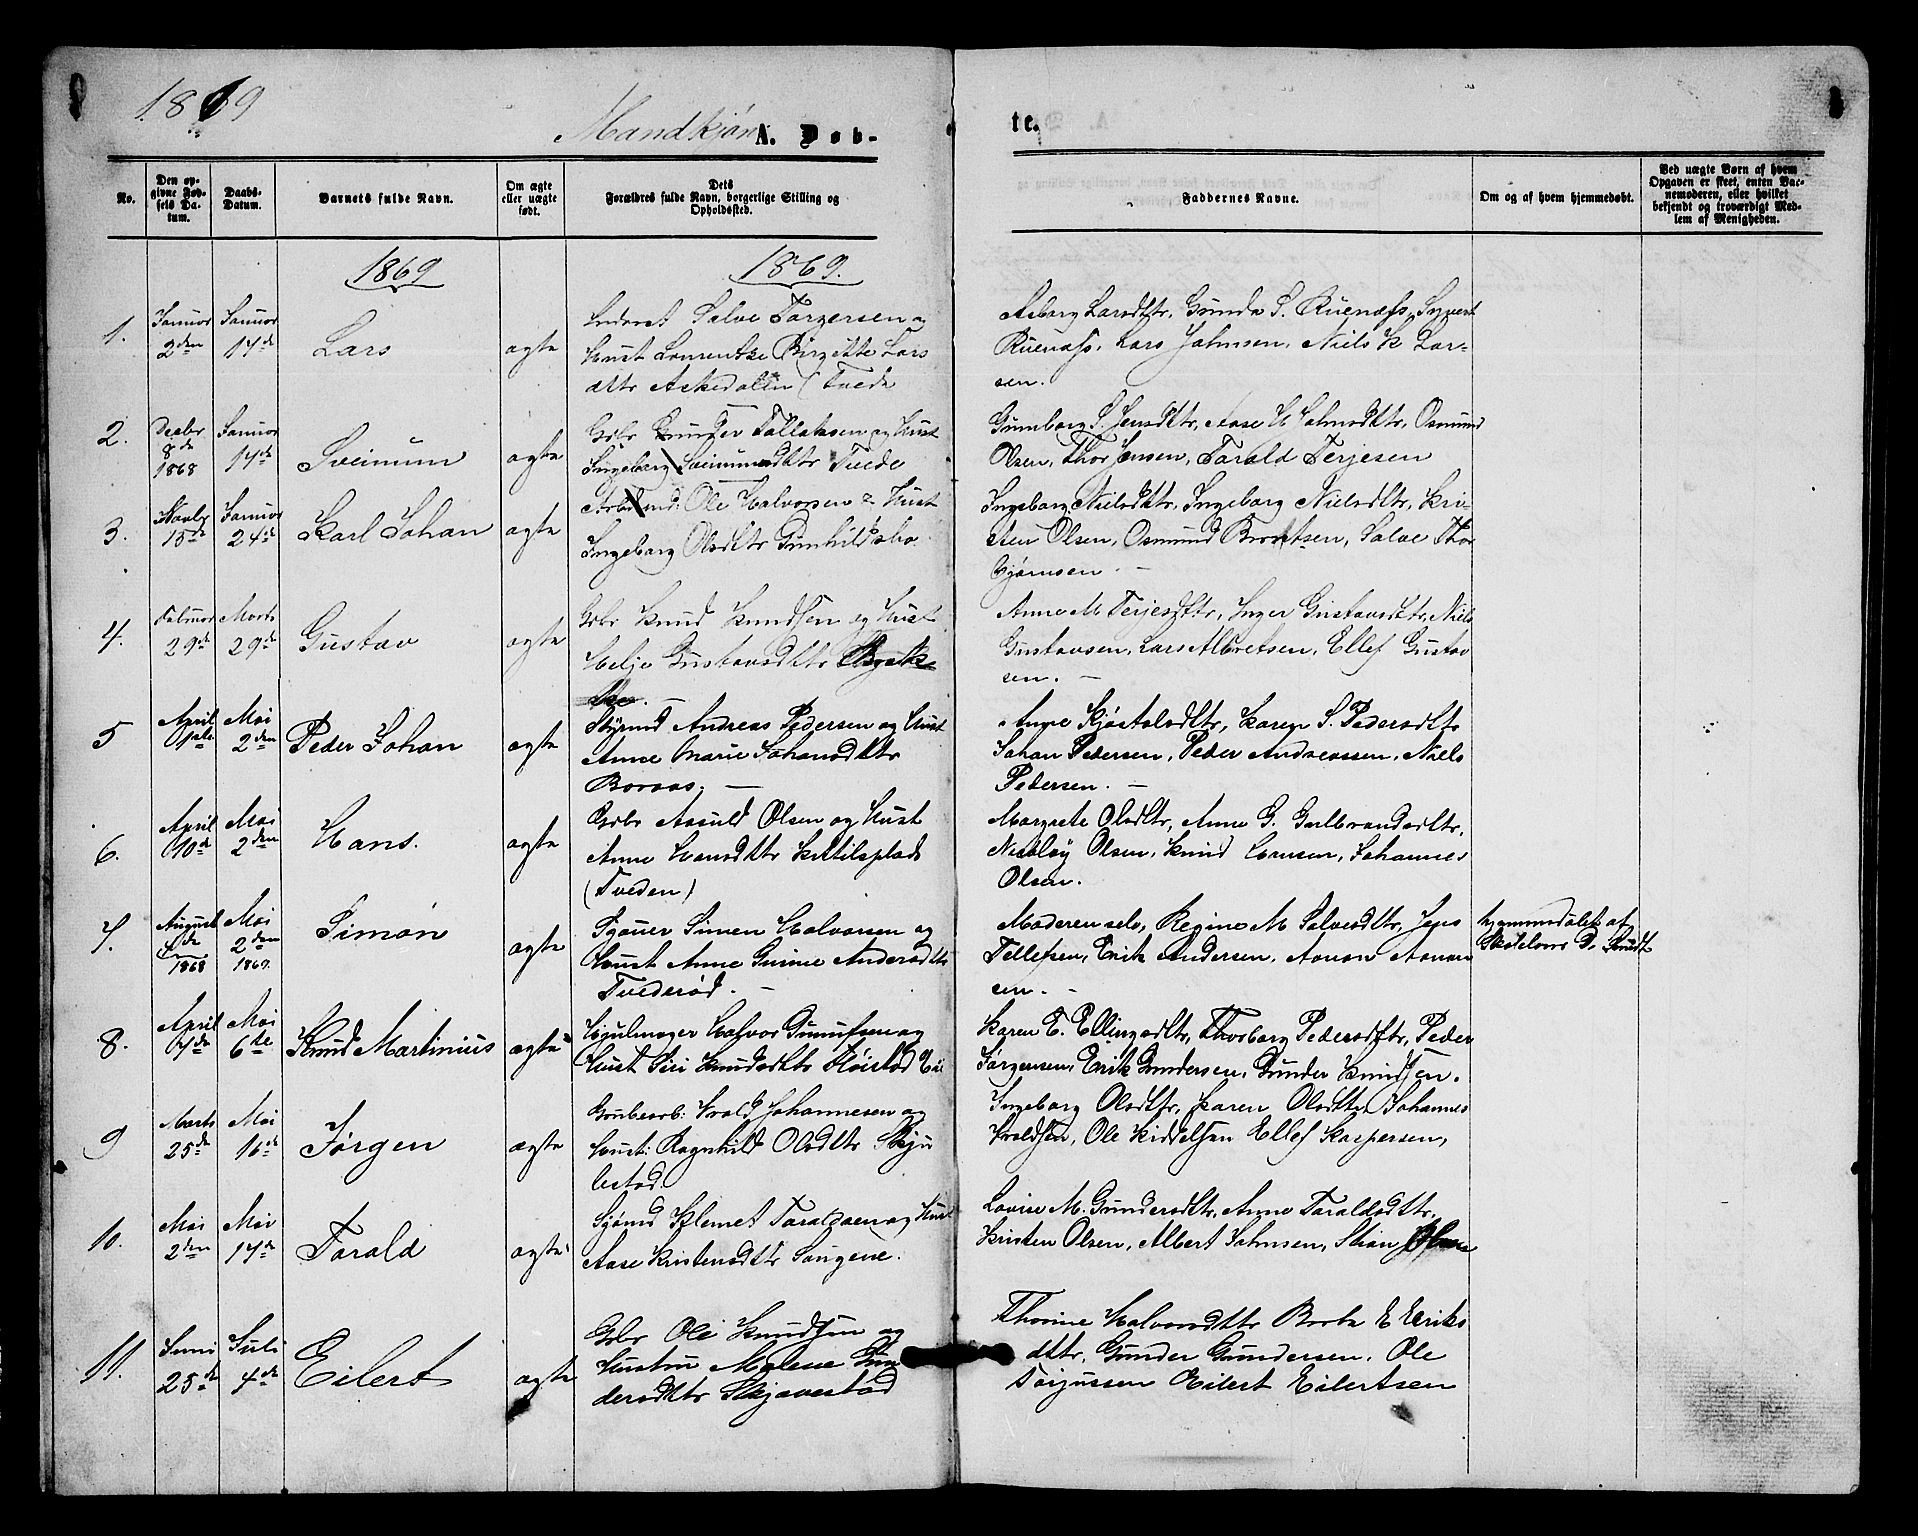 1869
Mandkjøn A. Døb-
te.
No.
Den op-
givne Fød-
sels Da-
tum.
Daabs-
Datum.
Barnets fulde Navn.
Om ægte
eller uægte
født.
Dets
Forældres fulde Navn, borgerlige Stilling og
Opholdssted.
Faddernes Navne.
Om og af hvem hjemmedøbt.
Ved uægte Børn af hvem
Opgaven er skeet, enten Bar-
nemoderen, eller hvilket
bekjendt og troværdigt Med-
lem af Menigheden.
1869
1869.
1.
Januar
2den
Januar
17de
Lars
ægte
Inderst Salve Torgersen og
Hust Lourentze Birgitte Lars
dttr Askedalen (Tvede
Asborg Larsdttr, Gunda S. Ruenæss, Syvert
Ruenæss, Lars Johnsen, Niels K Lar-
sen.
2.
Decbr
8de
1868
Januar
17de
Sveinum
ægte
Gbr Gunder Tallaksen og Hust
Ingeborg Sveinumsdttr Tvede
Gunborg S. Jensdttr, Aase H Salvesdttr, Osmund
Olsen, Thor Jensen, Tarald Terjesen
3.
Novbr
15de
Januar
24de
Karl Johan
ægte
Arbmd: Ole Halvorsen & Hust
Ingeborg Olsdttr Gunhildsbo.
Ingeborg Nielsdttr, Ingeborg Nielsdttr, Kri-
sten Olsen, Osmund Berntsen, Salve Thor
bjørnsen.
4.
Februar
29de
Marts
29de
Gustav
ægte
Gbr Knud Knudsen og Hust
Helje Gustavsdttr
Anne M Terjesdttr, Inger Gustavsdttr, Niels
Gustavsen, Lars Albretsen, Ellef Gustav
sen.
5
April
Mai
2den
Peder Johan
ægte
Styrmd Andreas Pedersen og Hust
Anne Marie Johansdttr
Boraas.
Anne Kjøstolsdttr, Karen S. Pedersdttr
Johan Pedersen, Peder Andreassen, Niels
Pedersen.
6.
April
10de
Mai
2den
Hans.
ægte
Gbr Aasuld Olsen og Hust
Anne Hansdttr Kittilsplads
(Tveden)
Margrete Olsdttr, Anne G. Gulbrandsdttr,
Nicolay Olsen, Knud Hansen, Johannes
Olsen.
7.
August
1868
Mai
2den
1869.
Simon
ægte
Simen Halvorsen og
Hust Anne Gurine Andersdttr
Tvederød.
Moderen selv, Regine M Salvesdttr, Jens
Tellefsen, Erik Andersen, Aanon Aanon
sen.
hjemmedøbt af
Skolelærer D. Smidt
8.
April
7de
Mai
6te
Knud Martinius
ægte
Hjulmager Halvor Gunufsen og
Hust Siri Knudsdttr Fløistad
Karen E. Ellingsdttr, Thorborg Pedersdttr, Peder
Jørgensen, Erik Gundersen, Gunder Knudsen.
9
Marts
25de
Mai
16de
Jørgen
ægte
Grubearb: Ivald Johannesen og
Hust: Ragnhild Olsdttr Skju
lestad.
Ingeborg Olsdttr, Karen Olsdttr, Johannes
Ivaldsen, Ole Kiddelsen Ellef Kaspersen,
10.
Mai
2den
Mai
17de
Tarald
ægte
Sjømd Klemet Taraldsen og Hust
Aase Kristensdttr Songene.
Lovise M. Gundersdttr, Anne Taraldsdttr,
Kristen Olsen, Albert Johnsen, Stian
11.
Juni
25de
Juli
4de
Eilert
ægte
Gbr Ole Knudsen og
Hustru Malene Gun
dersdttr Skjævestad
Thorine Halvorsdttr Berte E Eriks
dttr, Gunder Gundersen, Ole
Torjussen Eilert Eilertsen